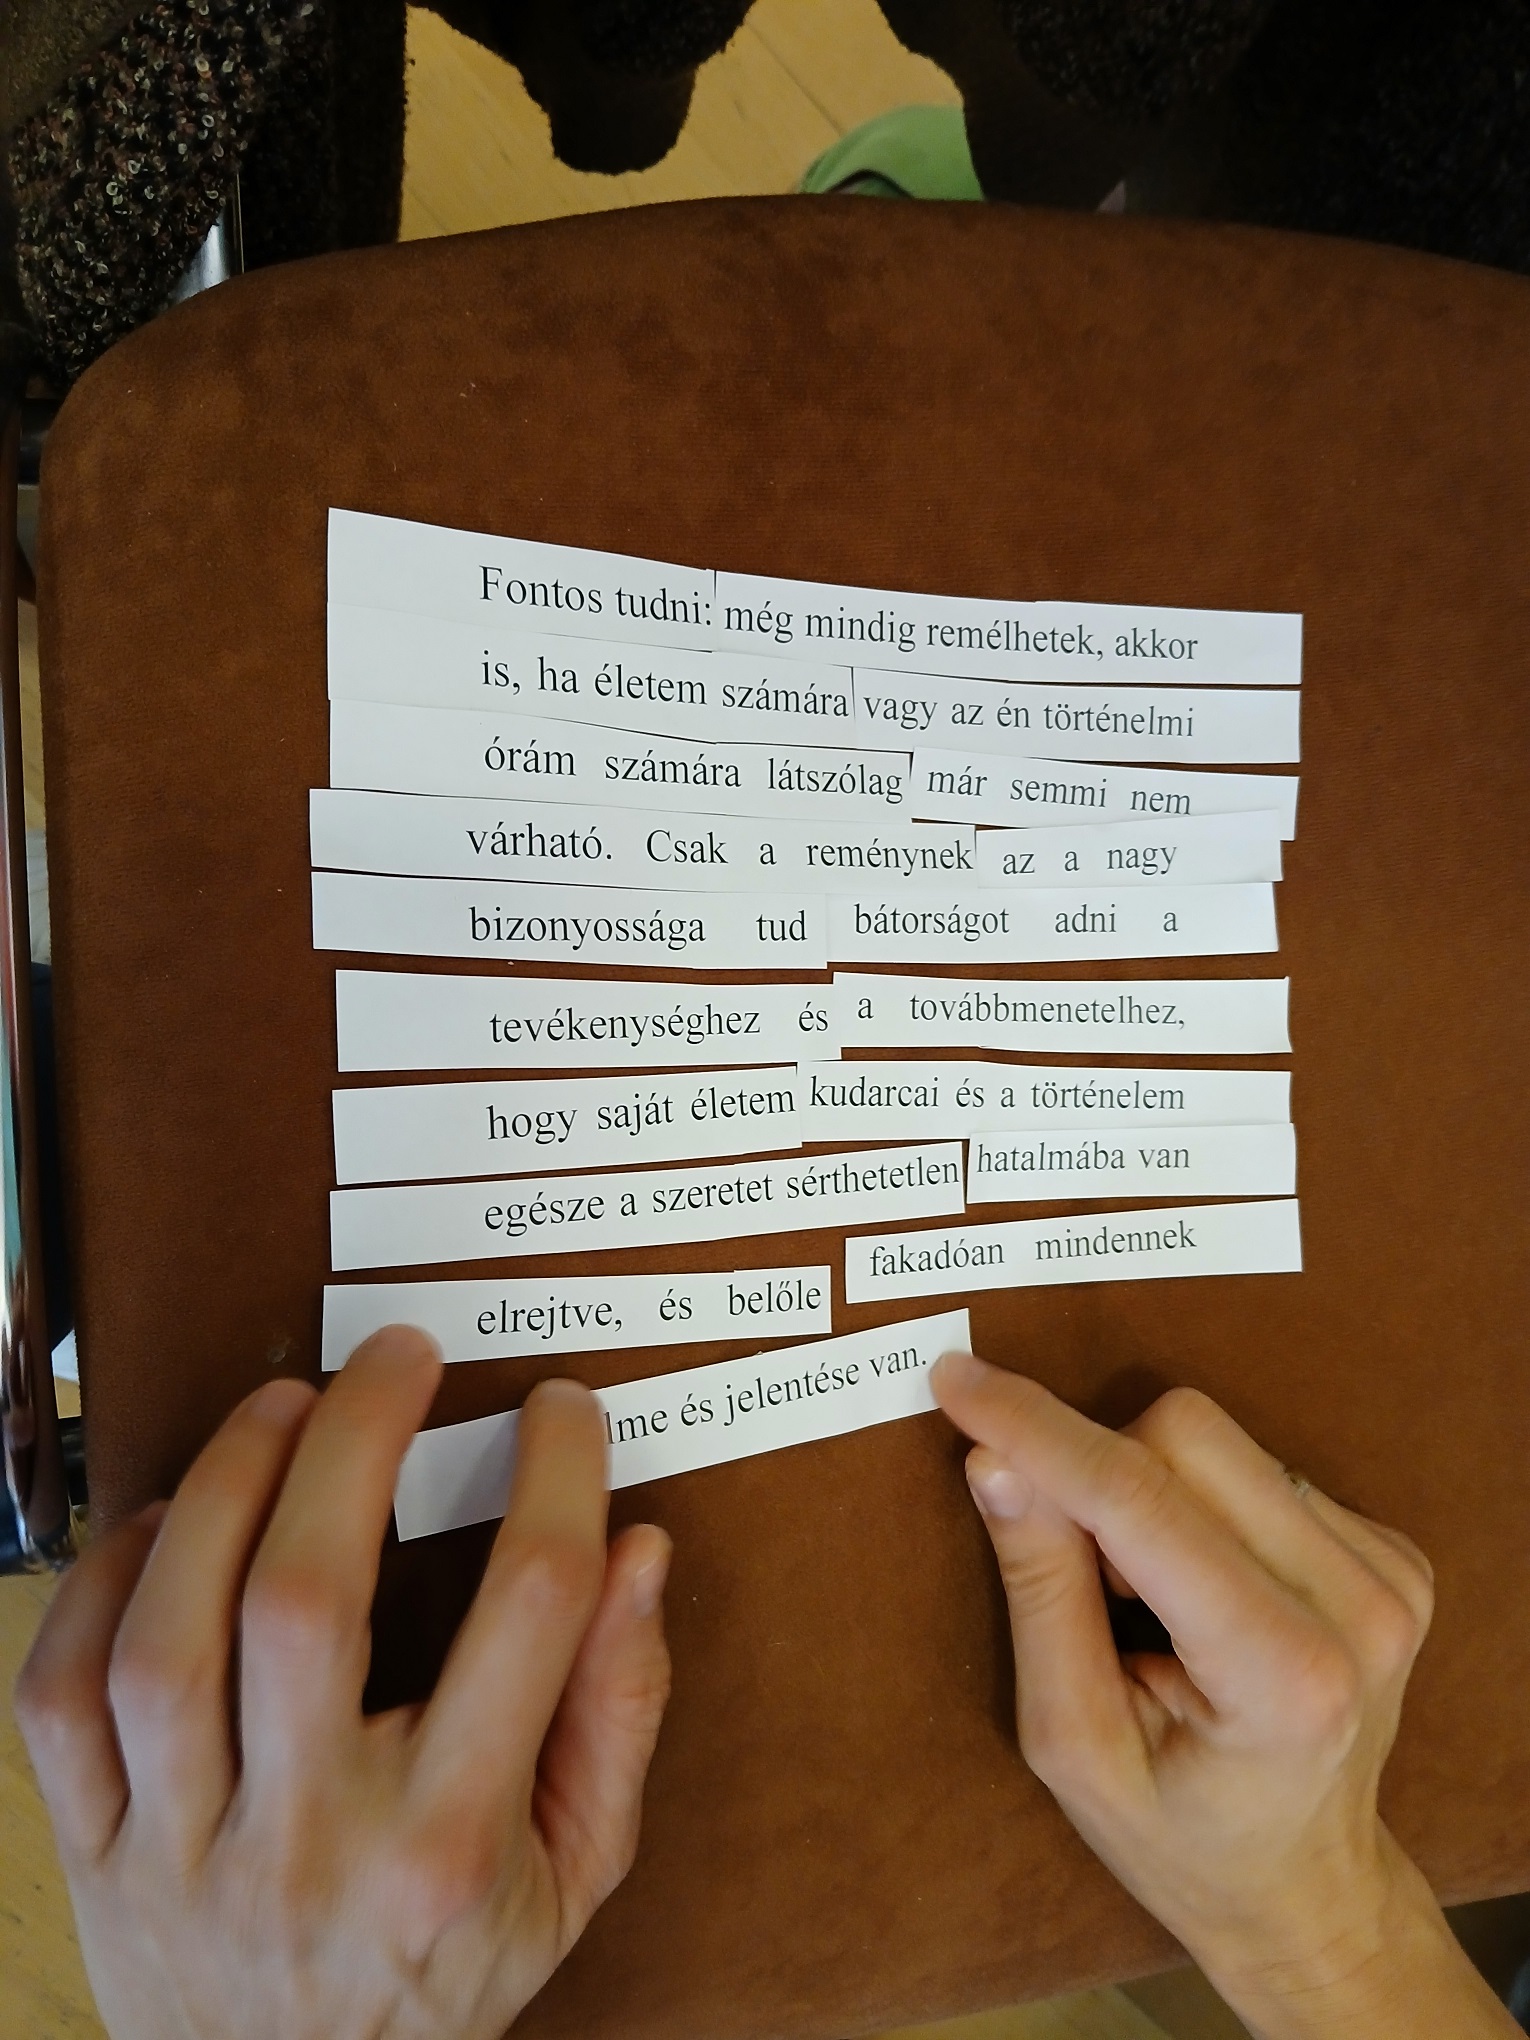 Fontos tudni: még mindig remélhetek, akkor
is, ha életem számára vagy az én történelmi
órám számára látszólag már semmi nem
várható. Csak a reménynek az a nagy
bizonyossága tud bátorságot adni a
tevékenységhez és a továbbmenetelhez,
hogy saját életem kudarcai és a történelem
egésze a szeretet sérthetetlen hatalmába van
elrejtve, és belőle fakadóan mindennek
és jelentése van.